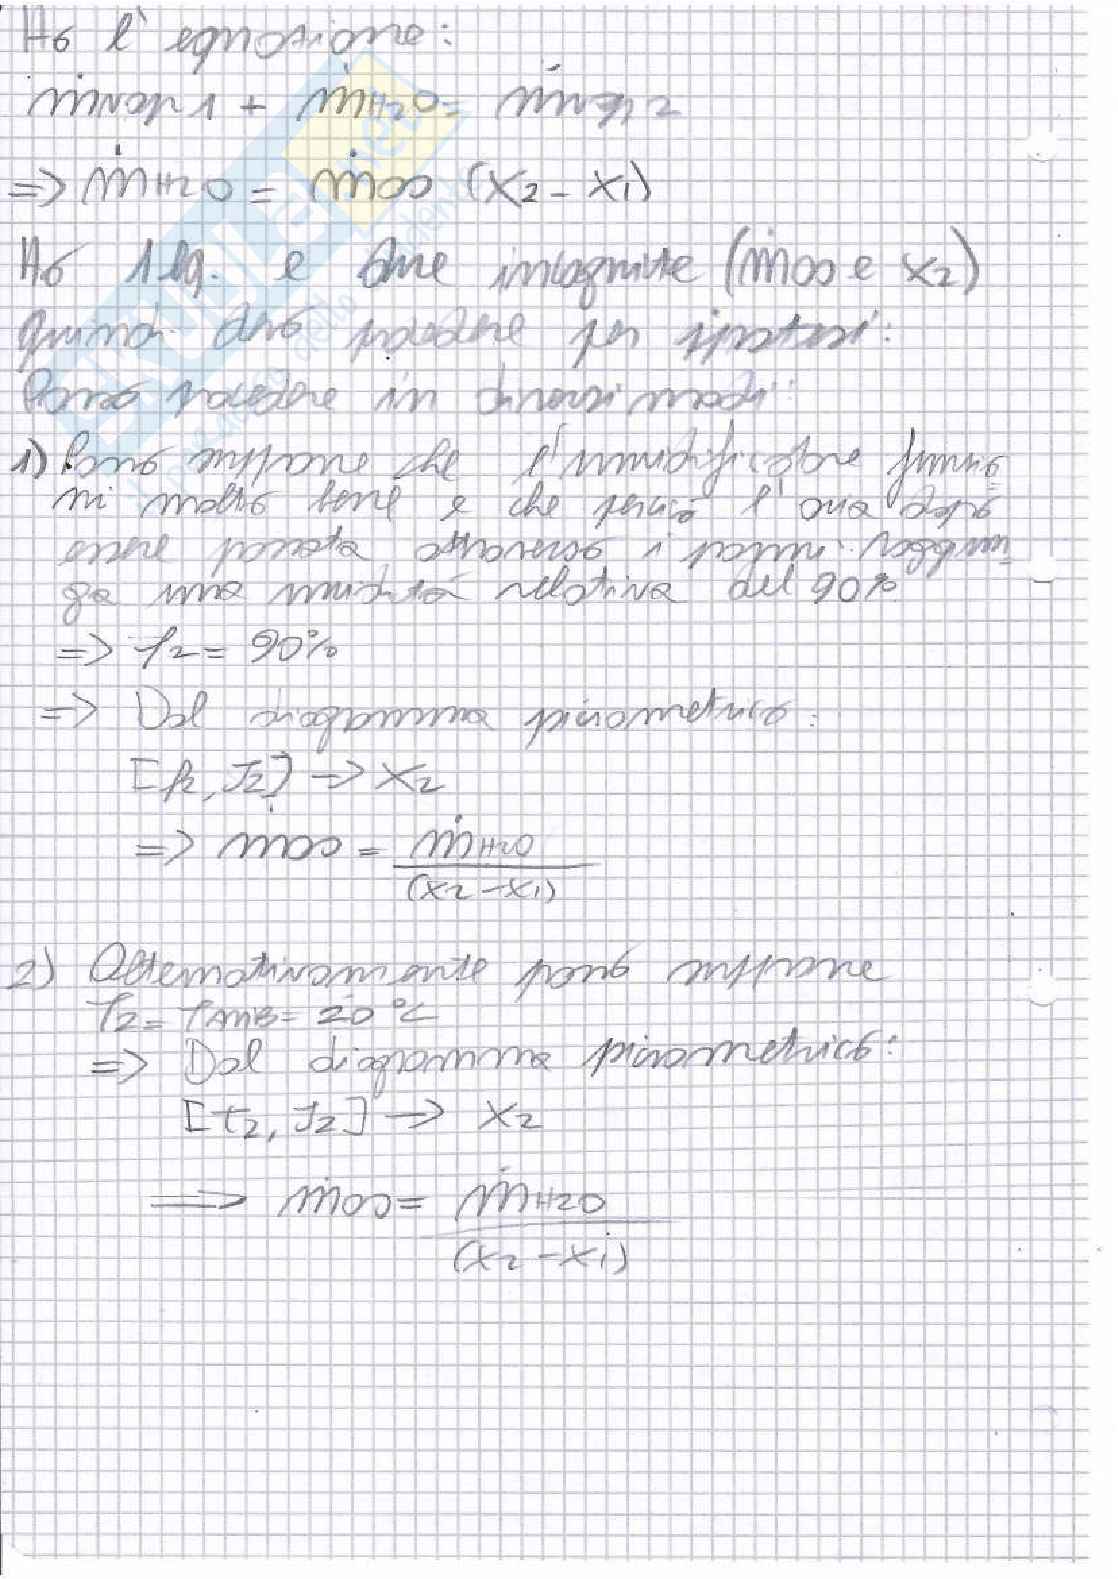 Ho l'equazione:
ṁvap1 + ṁH2O = ṁvap2
=> ṁH2O = ṁas (x2 - x1)
Ho 1 eq. e due incognite (ṁas e x2)
Quindi devo procedere per ipotesi:
Posso procedere in diversi modi:
1) Posso supporre che l'umidificatore funzio=
ni molto bene e che perciò l'aria dopo
essere passata attraverso i pacchi raggiun=
ga una umidità relativa del 90%.
=> φ2 = 90%
=> Dal diagramma psicrometrico:
[φ2, J2] -> x2
=> ṁas = ṁH2O
(x2 - x1)
2) Alternativamente posso supporre
T2 = TAMB = 20°C
=> Dal diagramma psicrometrico:
[t2, J2] -> x2
=> ṁas = ṁH2O
(x2 - x1)
SKUOLA.net